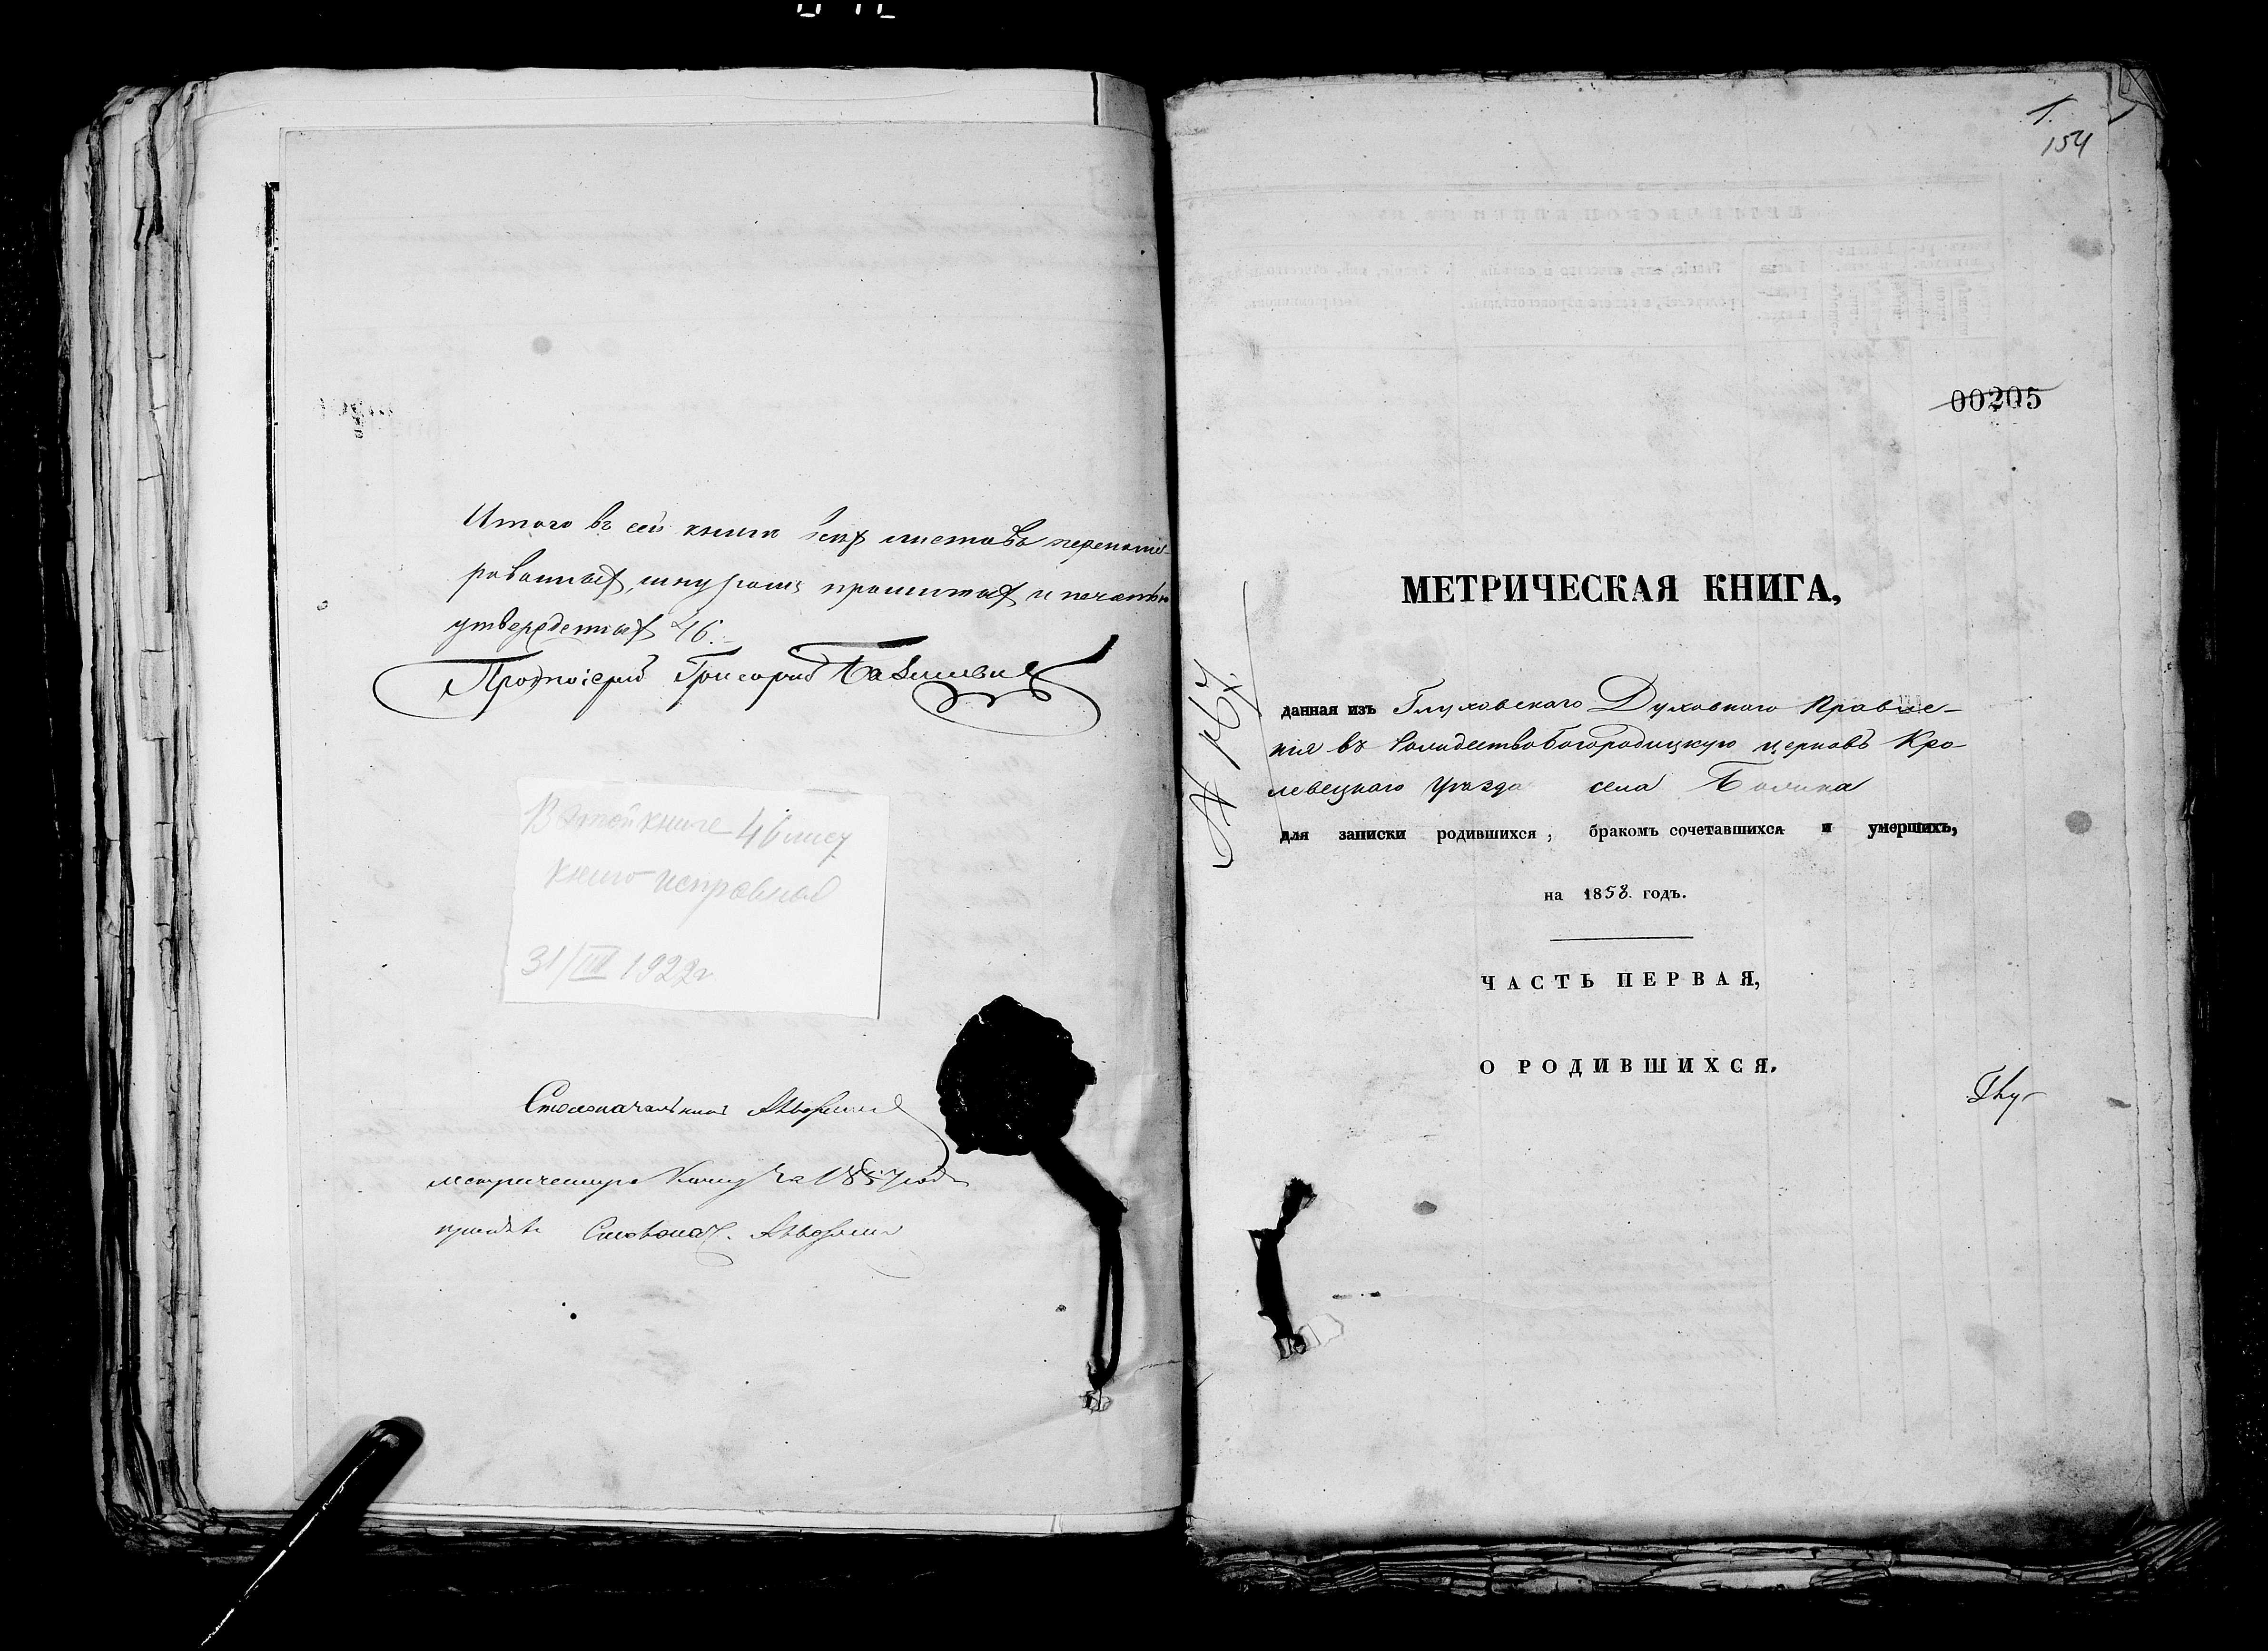 Итого въ сей книгѣ всѣхъ листовъ перенуме-
рованныхъ, шнуромъ прошитыхъ и печатью
утвержденныхъ 46.
Протоіерей Григорій
В этой книге 46 лист
книга исправная
31/III 1922 г
Столоначальникъ
метрическую книгу за 1857 годъ
Столонач.
1.
154
00205
МЕТРИЧЕСКАЯ КНИГА,
№ 164.
данная изъ Глуховскаго Духовнаго Правле-
нія въ Рождествобогородицкую церковь Кро-
левецкаго Уѣзда села
для записки родившихся, бракомъ сочетавшихся и умершихъ,
на 1858. годъ.
ЧАСТЬ ПЕРВАЯ,
О РОДИВШИХСЯ.